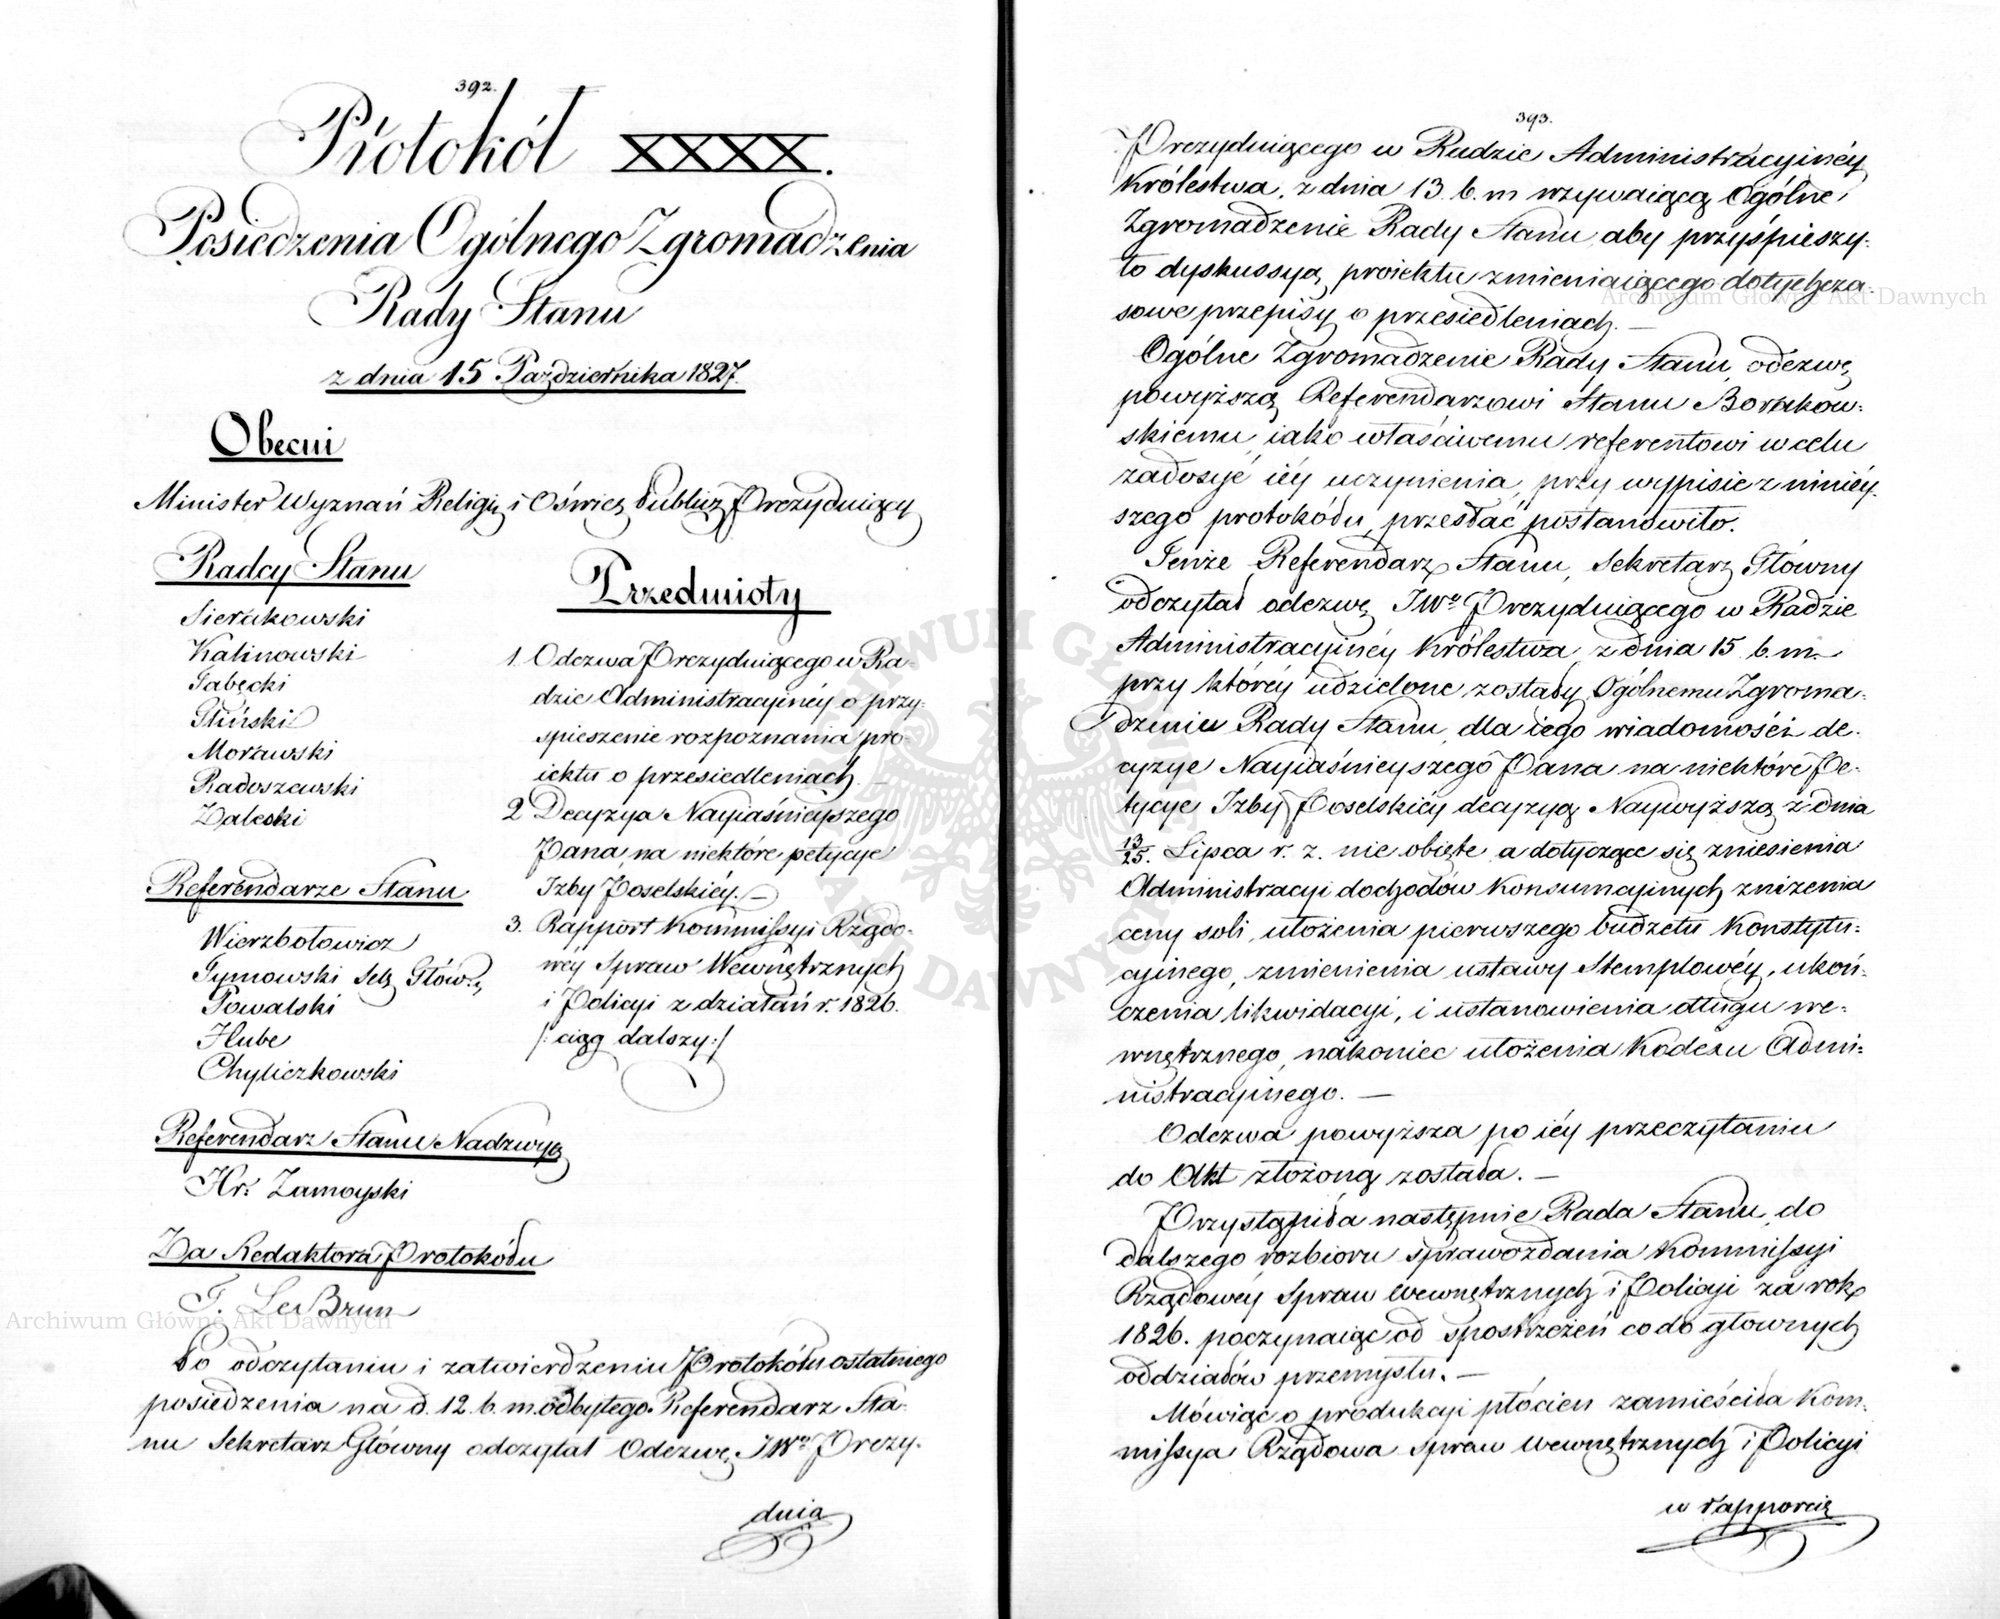 392.
Protokół XXXX.
Posiedzenia Ogólnego Zgromadzenia
Rady Stanu
z dnia 15 Października 1827.
Obecni
Minister Wyznań Religij i Oświec Publicz Prezydujący
Radcy Stanu
Sierakowski
Kalinowski
Tabęcki
Gliński
Morawski
Radoszewski
Zaleski
Referendarze Stanu
Wierzbołowicz
Tymowski Sek Główny
Powalski
Hube
Chyliczkowski
Referendarz Stanu Nadzwyc
Hr: Zamoyski
Za Redaktora Protokółu
T. Le Brun
Przedmioty
1. Odezwa Prezydującego w Ra-
dzie Administracyjnéy o przy-
spieszenie rozpoznania pro-
iektu o przesiedleniach. —
2 Decyzya Nayiaśnieyszego
Pana na niektóre petycye
Izby Poselskiéy. —
3. Rapport Kommissyi Rządo-
wéy Spraw Wewnętrznych
i Policyi z działań r. 1826.
/: ciąg dalszy :/
Po odczytaniu i zatwierdzeniu Protokółu ostatniego
posiedzenia na d. 12. b. m. odbytego Referendarz Sta-
nu Sekretarz Główny odczytał Odezwę JWo Prezy-
duią
393.
Prezyduiącego w Radzie Administracyinéy
Królestwa, z dnia 13. b. m wzywaiącą Ogólne
Zgromadzenie Rady Stanu, aby przyśpieszy-
ło dyskussyą proiektu zmieniaiącego dotychcza-
sowe przepisy o przesiedleniach. —
Ogólne Zgromadzenie Rady Stanu, odezwę
powyższą Referendarzowi Stanu Borakow-
skiemu, iako właściwemu referentowi w celu
zadosyć iéy uczynienia, przy wypisie z niniéy-
szego protokółu, przesłać postanowiło.
Tenże Referendarz Stanu, Sekretarz Główny
odczytał odezwę JWo Prezyduiącego w Radzie
Administracyinéy Królestwa z dnia 15. b. m.
przy któréy udzielone zostały Ogólnemu Zgroma-
dzeniu Rady Stanu, dla iego wiadomości de-
cyzye Nayiaśnieyszego Pana na niektóre Pe-
tycye Izby Poselskiéy decyzyą Naywyższą z dnia
13/25. Lipca r. z. nie obięte a dotyczące się zniesienia
Administracyi dochodów Konsumcyinych zniżenia
ceny soli, ułożenia pierwszego budżetu Konstytu-
cyinego, zmienienia ustawy Stemplowéy, ukoń-
czenia likwidacyi, i ustanowienia długu we-
wnętrznego, nakoniec ułożenia Kodexu Admi-
nistracyinego. —
Odezwa powyższa po iéy przeczytaniu
do Akt złożoną została. —
Przystąpiła następnie Rada Stanu, do
dalszego rozbioru sprawozdania Kommissyi
Rządowéy Spraw Wewnętrznych i Policyi za rok
1826. poczynaiąc od spostrzeżeń co do głownych
oddziałów przemysłu. —
Mówiąc o produkcyi płócien zamieściła Kom-
missya Rządowa Spraw Wewnętrznych i Policyi
w rapporcie
Archiwum Główne Akt Dawnych
Archiwum Główne Akt Dawnych
ARCHIWUM GŁÓWNE AKT DAWNYCH